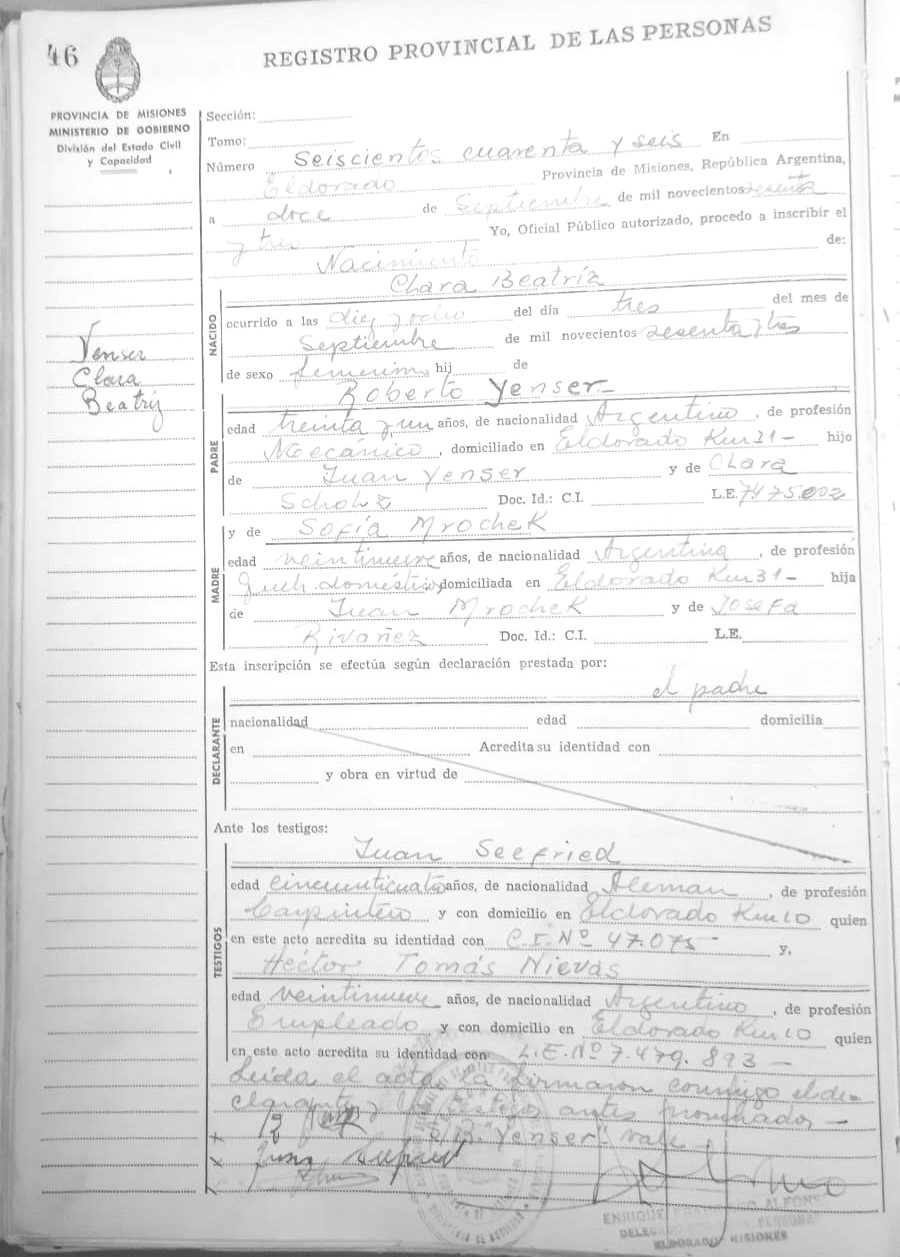 46
REGISTRO PROVINCIAL DE LAS PERSONAS
PROVINCIA DE MISIONES
MINISTERIO DE GOBIERNO
División del Estado Civil
y Capacidad
Yenser
Clara
Beatriz
Sección:
Tomo:
Número Seiscientos cuarenta y seis En
Eldorado Provincia de Misiones, República Argentina,
a doce de Septiembre de mil novecientos sesenta
y tres Yo, Oficial Público autorizado, procedo a inscribir el
Nacimiento de:
NACIDO
Clara Beatríz
ocurrido a las diez y ocho del día tres del mes de
Septiembre de mil novecientos sesenta y tres
de sexo femenino hij de
PADRE
Roberto Yenser-
edad treinta y un años, de nacionalidad Argentino, de profesión
Mecánico, domiciliado en Eldorado Km 31- hijo
de Juan Yenser y de Clara
Scholz Doc. Id.: C.I. L.E. 7475.002
y de Sofía Mrochek
MADRE
edad veintinueve años, de nacionalidad Argentina, de profesión
domésticos domiciliada en Eldorado Km 31- hija
de Juan Mrochek y de Josefa
Rivañez Doc. Id.: C.I. L.E.
Esta inscripción se efectúa según declaración prestada por:
el padre
DECLARANTE
nacionalidad edad domicilia
en Acredita su identidad con
y obra en virtud de
Ante los testigos:
TESTIGOS
Juan Seefried
edad cincuenticuatro años, de nacionalidad Aleman, de profesión
Carpintero y con domicilio en Eldorado Km 10 quien
en este acto acredita su identidad con C.I. Nº 47.075- y,
Héctor Tomás Nievas
edad veintinueve años, de nacionalidad Argentino, de profesión
Empleado y con domicilio en Eldorado Km 10 quien
en este acto acredita su identidad con L.E. Nº 7.479.893-
Leída el acta, la firmaron conmigo el de-
clarante y los testigos antes nombrados-
"Yenser" vale
ENRIQUE ALFONS
ELDORADO MISIONES